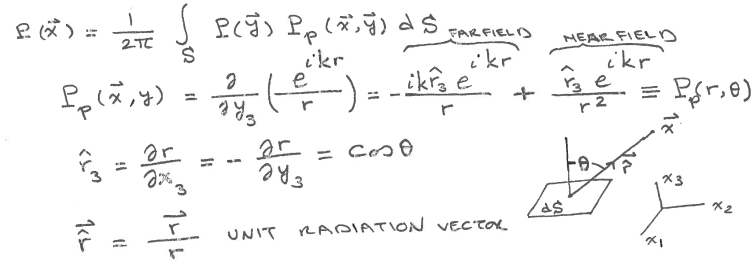 P(x⃗) = 1/2π ∫_S P(y⃗) P_p(x⃗,y⃗) dS
FARFIELD NEARFIELD
P_p(x⃗,y) = ∂/∂y₃ (e^{ikr}/r) = -ikr̂₃e^{ikr}/r + r̂₃e^{ikr}/r² ≡ P_p(r,θ)
r̂₃ = ∂r/∂x₃ = - ∂r/∂y₃ = cos θ
r̂⃗ = r⃗/r UNIT RADIATION VECTOR
x⃗
θ r̂⃗
dS
x₃
x₂
x₁